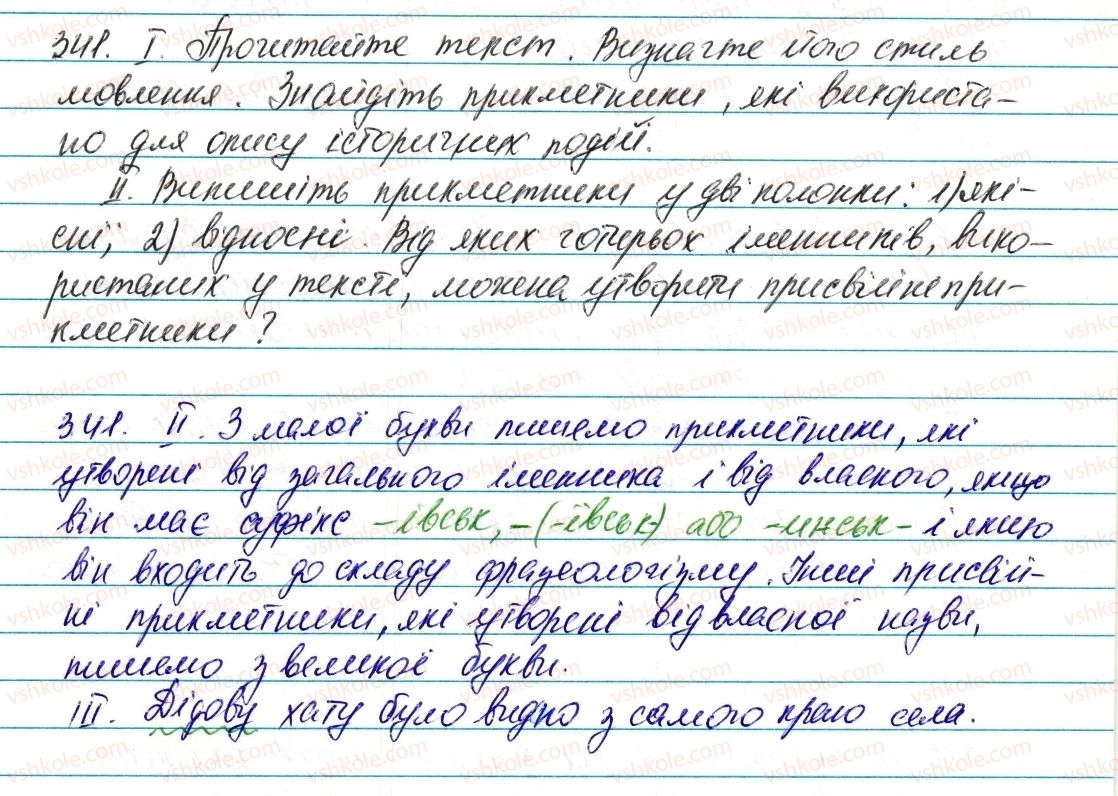 341. I. Прочитайте текст. Визначте його стиль
мовлення. Знайдіть прикметники, які використа-
но для опису історичних подій.
II. Випишіть прикметники у дві колонки: 1) які-
сні; 2) відносні. Від яких чотирьох іменників, вико-
ристаних у тексті, можна утворити присвійні при-
кметники?
341. II. З малої букви пишемо прикметники, які
утворені від загального іменника і від власного, якщо
він має суфікс -івськ, -(-ївськ-) або -инськ- і якщо
він входить до складу фразеологізму. Інші присвій-
ні прикметники, які утворені від власної назви,
пишемо з великої букви.
III. Дідову хату було видно з самого краю села.